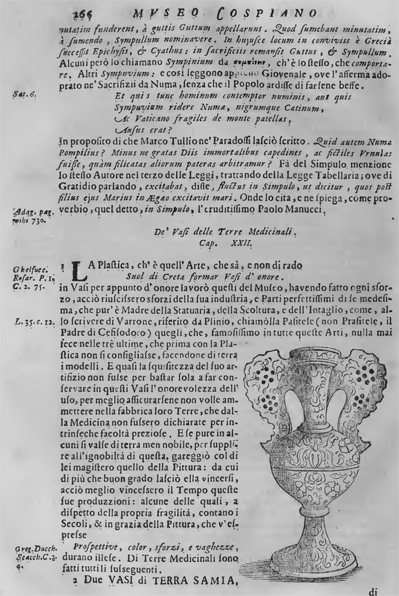 266 MVSEO COSPIANO
nutatim funderent, à guttis Guttum appellarunt. Quod sumebant minutatim,
à sumendo, Sympullum nominavere. In hujusce locum in conviviis è Grecia
successit Epichysis, & Cyathus: in sacrificiis remansit Guttus, & Sympullum.
Alcuni però lo chiamano Sympinium da ch'è lo stesso, che comporta-
re, Altri Sympuvium: e così leggono appresso Giovenale, ove l'afferma ado-
prato ne' Sacrifizi da Numa, senza che il Popolo ardisse di farsene beffe.
Sat. 6.
Et qui s tunc hominum contemptor numinis, aut quis
Sympuvium ridere Numa, nigrumque Catinum,
Ac Vaticano fragiles de monte patellas,
Ausus erat?
In proposito di che Marco Tullio ne' Paradossi lasciò scritto. Quid autem Numa
Pompilius? Minus ne gratas Diis immortalibus capedines, ac fictiles Vrnulas
fuisse, quàm filicatas aliorum pateras arbitramur? Fà del Simpulo menzione
lo stesso Autore nel terzo delle Leggi, trattando della Legge Tabellaria; ove di
Gratidio parlando, excitabat, disse, fluctus in Simpulo, ut dicitur, quos post
filius ejus Marius in Ægæo excitavit mari. Onde lo cita, e ne spiega, come pro-
verbio, quel detto, in Simpulo, l'eruditissimo Paolo Manucci.
Adag. pag.
mihi 730.
De' Vasi delle Terre Medicinali.
Cap. XXII.
Ghelfucc.
Rosar. P. 1.
C. 2. 75.
1 LA Plastica, ch' è quell' Arte, che sà, e non di rado
Suol di Creta formar Vasi d' onore.
in Vasi per appunto d'onore lavorò questi del Museo, havendo fatto ogni sfor-
zo, acciò riuscissero sforzi della sua industria, e Parti perfettissimi di se medesi-
ma, che pur' è Madre della Statuaria, della Scoltura, e dell'Intaglio, come, al-
L. 35. c. 12.
lo scrivere di Varrone, riferito da Plinio, chiamolla Pasitele (non Prasitele, il
Padre di Cefissodoro) quegli, che, famosissimo in tutte queste Arti, nulla mai
fece nelle trè ultime, che prima con la Pla-
stica non si consigliasse, facendone di terra
i modelli. E quasi la squisitezza del suo ar-
tifizio non fusse per bastar sola a far con-
servare in questi Vasi l' onorevolezza dell'
uso, per meglio assicurarsene non volle am-
mettere nella fabbrica loro Terre, che dal-
la Medicina non fussero dichiarate per in-
trinseche facoltà preziose. E se pure in al-
cuni si valse di terra men nobile, per suppli-
re all'ignobiltà di questa, gareggiò col di
lei magistero quello della Pittura: da cui
di più che buon grado lasciò ella vincersi,
acciò meglio vincessero il Tempo queste
sue produzzioni: alcune delle quali, a
dispetto della propria fragilità, contano i
Secoli, & in grazia della Pittura, che v'es-
presse
Greg. Ducch.
Scacch. C. 3.
4.
Prospettive, color, sforzi, e vaghezze,
durano illese. Di Terre Medicinali sono
fatti tutti li susseguenti.
2 Due VASI di TERRA SAMIA,
di